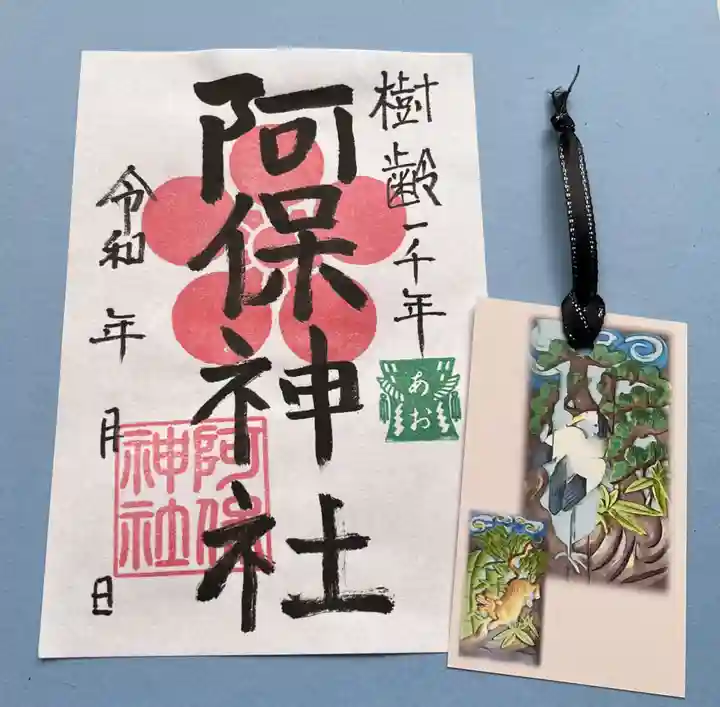 樹齢一千年
あお
阿保神社
阿保
神社
令和 年 月 日